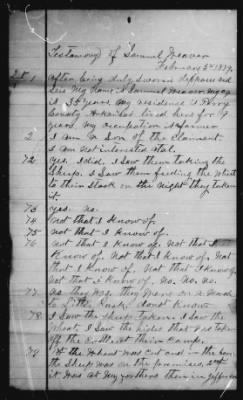 Testimony of Samuel Weaver
February 3rd 1879.
1 After being duly sworn deposes and
says My Name is Samuel Weaver my age
is 35 years my residence is Perry
County Arkansas lived here for 9
years. My occupation is farmer
2 I am a Son of the claimant
I am not interested at al.
72 yes. I did. I saw them taking the
Sheep. I saw them feeding the Wheat
to their stock on the night they taken
it.
73 yes. no.
74 not that I know of.
75 not that I know of.
76 not that I know of. Not that I
Know of. Not that I know of. Not
that I know of. Not that I know of.
not that I know of. no. no. no.
77 as they was on a march
to Little Rock, I dont Know
78 I saw the sheep taken I saw the
Wheat. I saw the hides that was taken
off the at their Camp.
79 the Wheat was cut and in the
the Sheep was on the premises,
it was at my fathers then in Jefferson